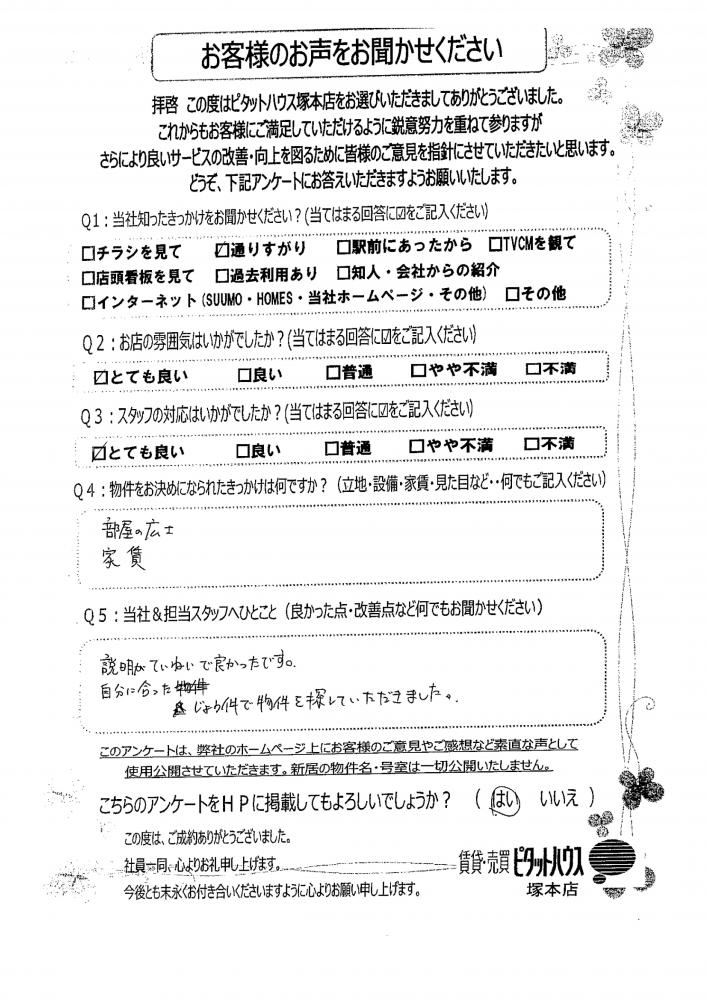 お客様のお声をお聞かせください
拝啓 この度はピタットハウス塚本店をお選びいただきましてありがとうございました。
これからもお客様にご満足していただけるように鋭意努力を重ねて参りますが
さらにより良いサービスの改善・向上を図るために皆様のご意見を指針にさせていただきたいと思います。
どうぞ、下記アンケートにお答えいただきますようお願いいたします。
Q1：当社知ったきっかけをお聞かせください？(当てはまる回答に☑をご記入ください)
□チラシを見て ☑通りすがり □駅前にあったから □TVCMを観て
□店頭看板を見て □過去利用あり □知人・会社からの紹介
□インターネット(SUUMO・HOMES・当社ホームページ・その他) □その他
Q2：お店の雰囲気はいかがでしたか？(当てはまる回答に☑をご記入ください)
☑とても良い □良い □普通 □やや不満 □不満
Q3：スタッフの対応はいかがでしたか？(当てはまる回答に☑をご記入ください)
☑とても良い □良い □普通 □やや不満 □不満
Q4：物件をお決めになられたきっかけは何ですか？（立地・設備・家賃・見た目など・・何でもご記入ください)
部屋の広士
家賃
Q5：当社＆担当スタッフへひとこと（良かった点・改善点など何でもお聞かせください）
説明がていねいで良かったです。
自分に合った物件
じょう件で物件を探していただきました。
このアンケートは、弊社のホームページ上にお客様のご意見やご感想など素直な声として
使用公開させていただきます。新居の物件名・号室は一切公開いたしません。
こちらのアンケートをHPに掲載してもよろしいでしょうか？（はい いいえ）
この度は、ご成約ありがとうございました。
社員一同、心よりお礼申し上げます。
今後とも末永くお付き合いくださいますように心よりお願い申し上げます。
賃貸・売買 ピタットハウス
塚本店